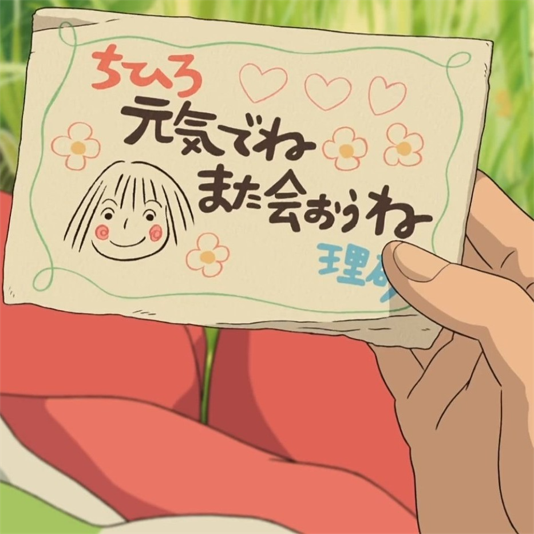 ちひろ
元気でね
また会おうね
理